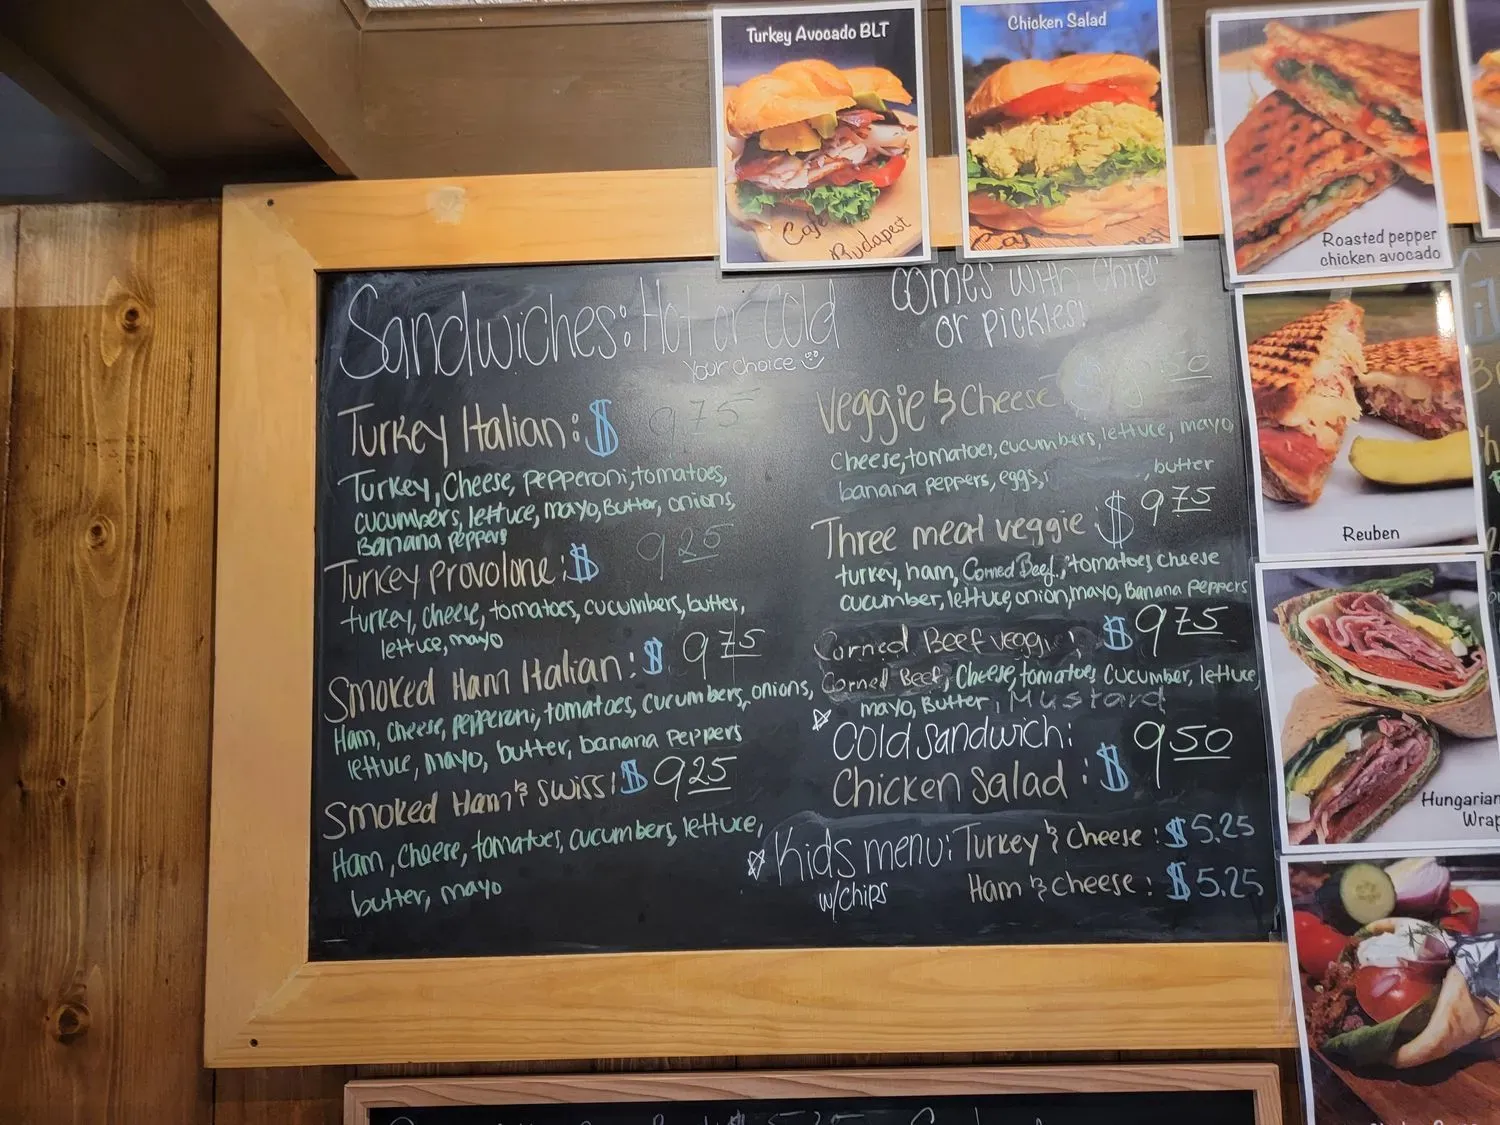 Turkey Avocado BLT
Café Budapest
Chicken Salad
Roasted pepper
chicken avocado
Reuben
Hungarian
Wrap
Sandwiches: Hot or Cold
Your choice
comes with chips
or pickles!
Turkey Italian: $ 9.75
Turkey, Cheese, pepperoni, tomatoes,
cucumbers, lettuce, mayo, Butter, onions,
Banana peppers
Turkey provolone: $ 9.25
turkey, cheese, tomatoes, cucumbers, butter,
lettuce, mayo
Smoked Ham Italian: $ 9.75
Ham, cheese, pepperoni, tomatoes, cucumbers, onions,
lettuce, mayo, butter, banana peppers
Smoked Ham & Swiss: $ 9.25
Ham, cheese, tomatoes, cucumbers, lettuce,
butter, mayo
Veggie & Cheese 50
Cheese, tomatoes, cucumbers, lettuce, mayo,
banana peppers, eggs, , butter
Three meat veggie: $ 9.75
turkey, ham, Corned Beef, tomatoes cheese
cucumber, lettuce, onion, mayo, Banana peppers
Corned Beef veggie: $ 9.75
Corned Beef, Cheese, tomatoes cucumber, lettuce,
mayo, Butter, Mustard
Cold sandwich:
Chicken Salad: $ 9.50
Kids menu: Turkey & Cheese: $5.25
w/chips
Ham & Cheese: $5.25